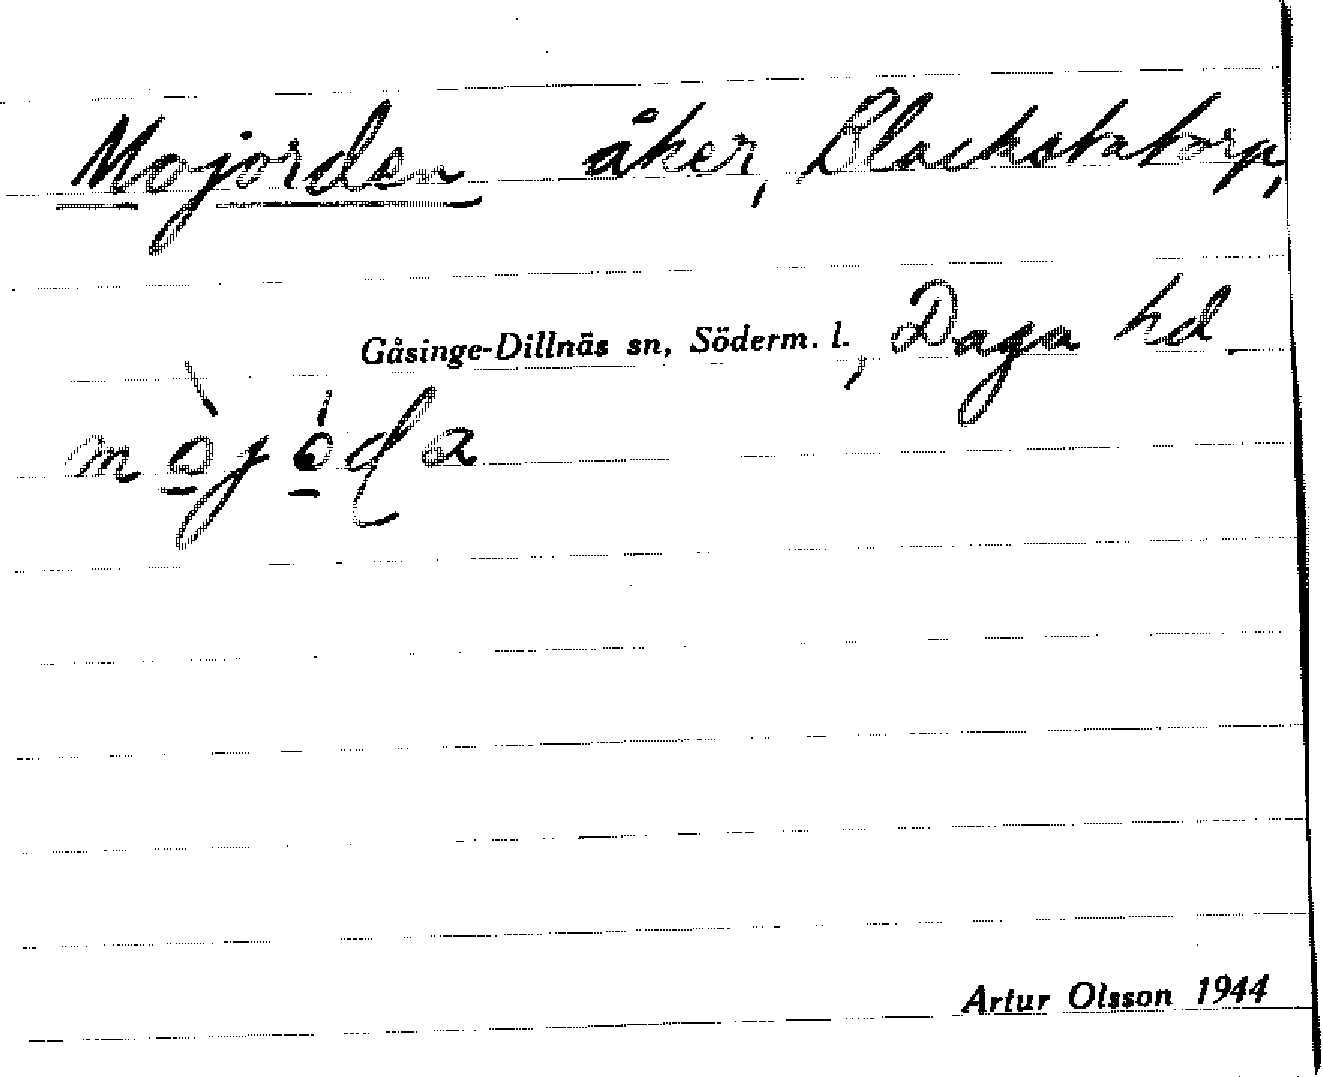 Mojorden åker, Blackstatorp,
Gåsinge-Dillnäs sn, Söderm. l., Daga hd.
mò̲jó̲ɖa
Artur Olsson 1944